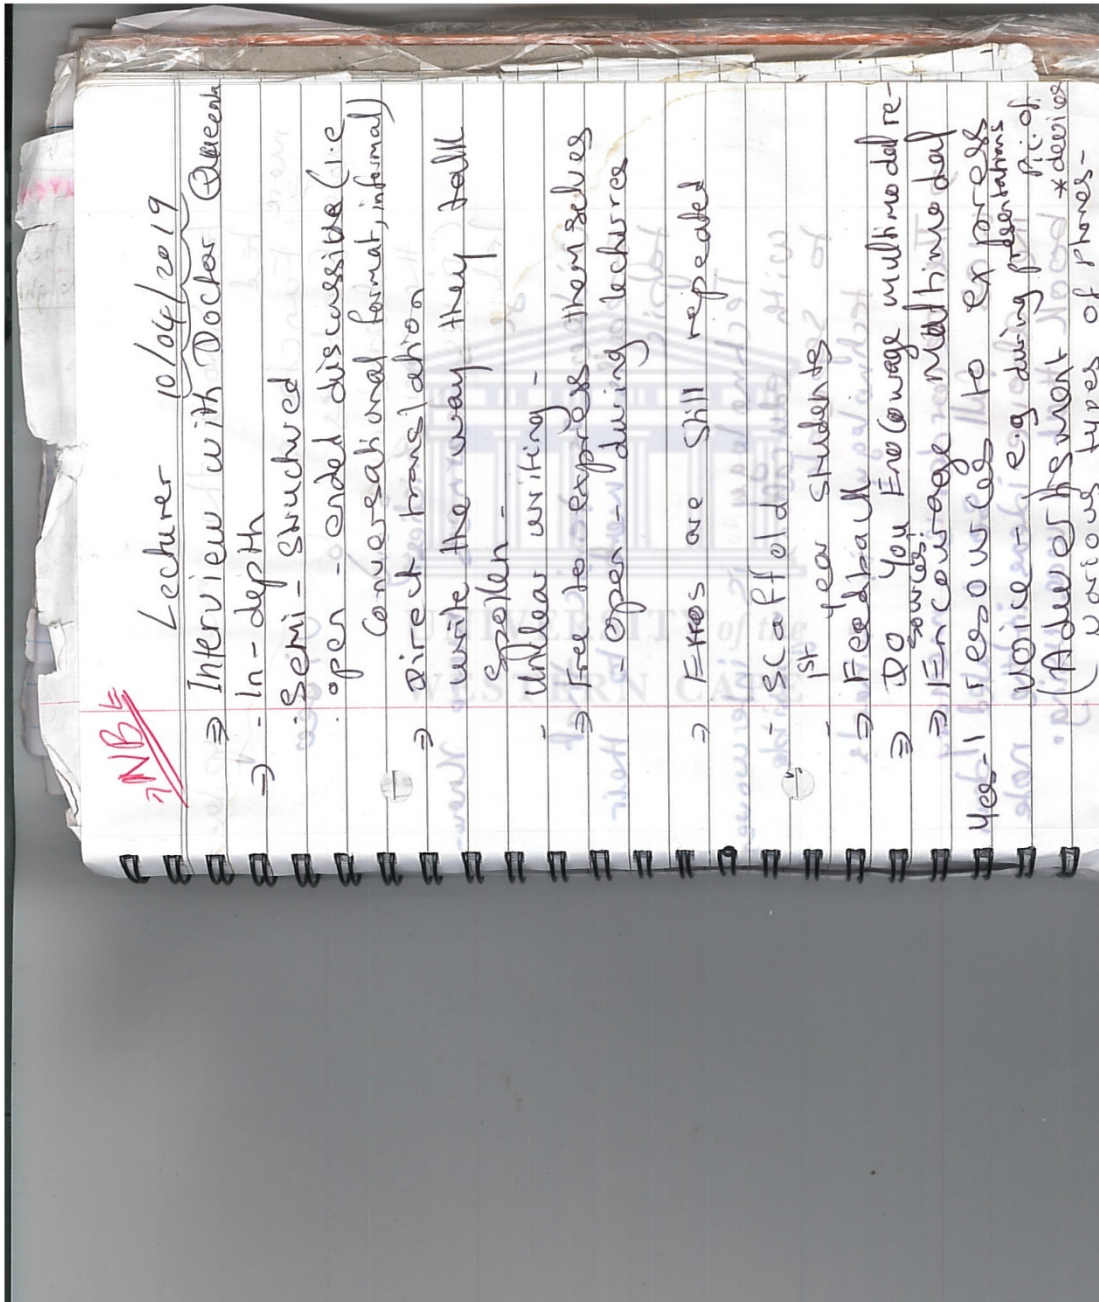 NB
Lecturer 10/04/2019
⇒ Interview with Doctor Queenta
⇒ - In-depth
- Semi - Structured
- open - ended discussible (i.e
conversational format, informal)
⇒ Direct translation
write the way they talk
Spoken -
- Unclear writing -
⇒ Free to express themselves
- open - during lecturres
⇒ Erros are still repeated
- Scaffold -
- 1st year students
⇒ Feedback
⇒ Do you Encourage multimodal re-
sources?
⇒ Encourage multimodal
Yes - 1 resources to express
voice - eg during presentations
(Advertisment pic. of
various types of phones - *devices
UNIVERSITY of the
WESTERN CAPE